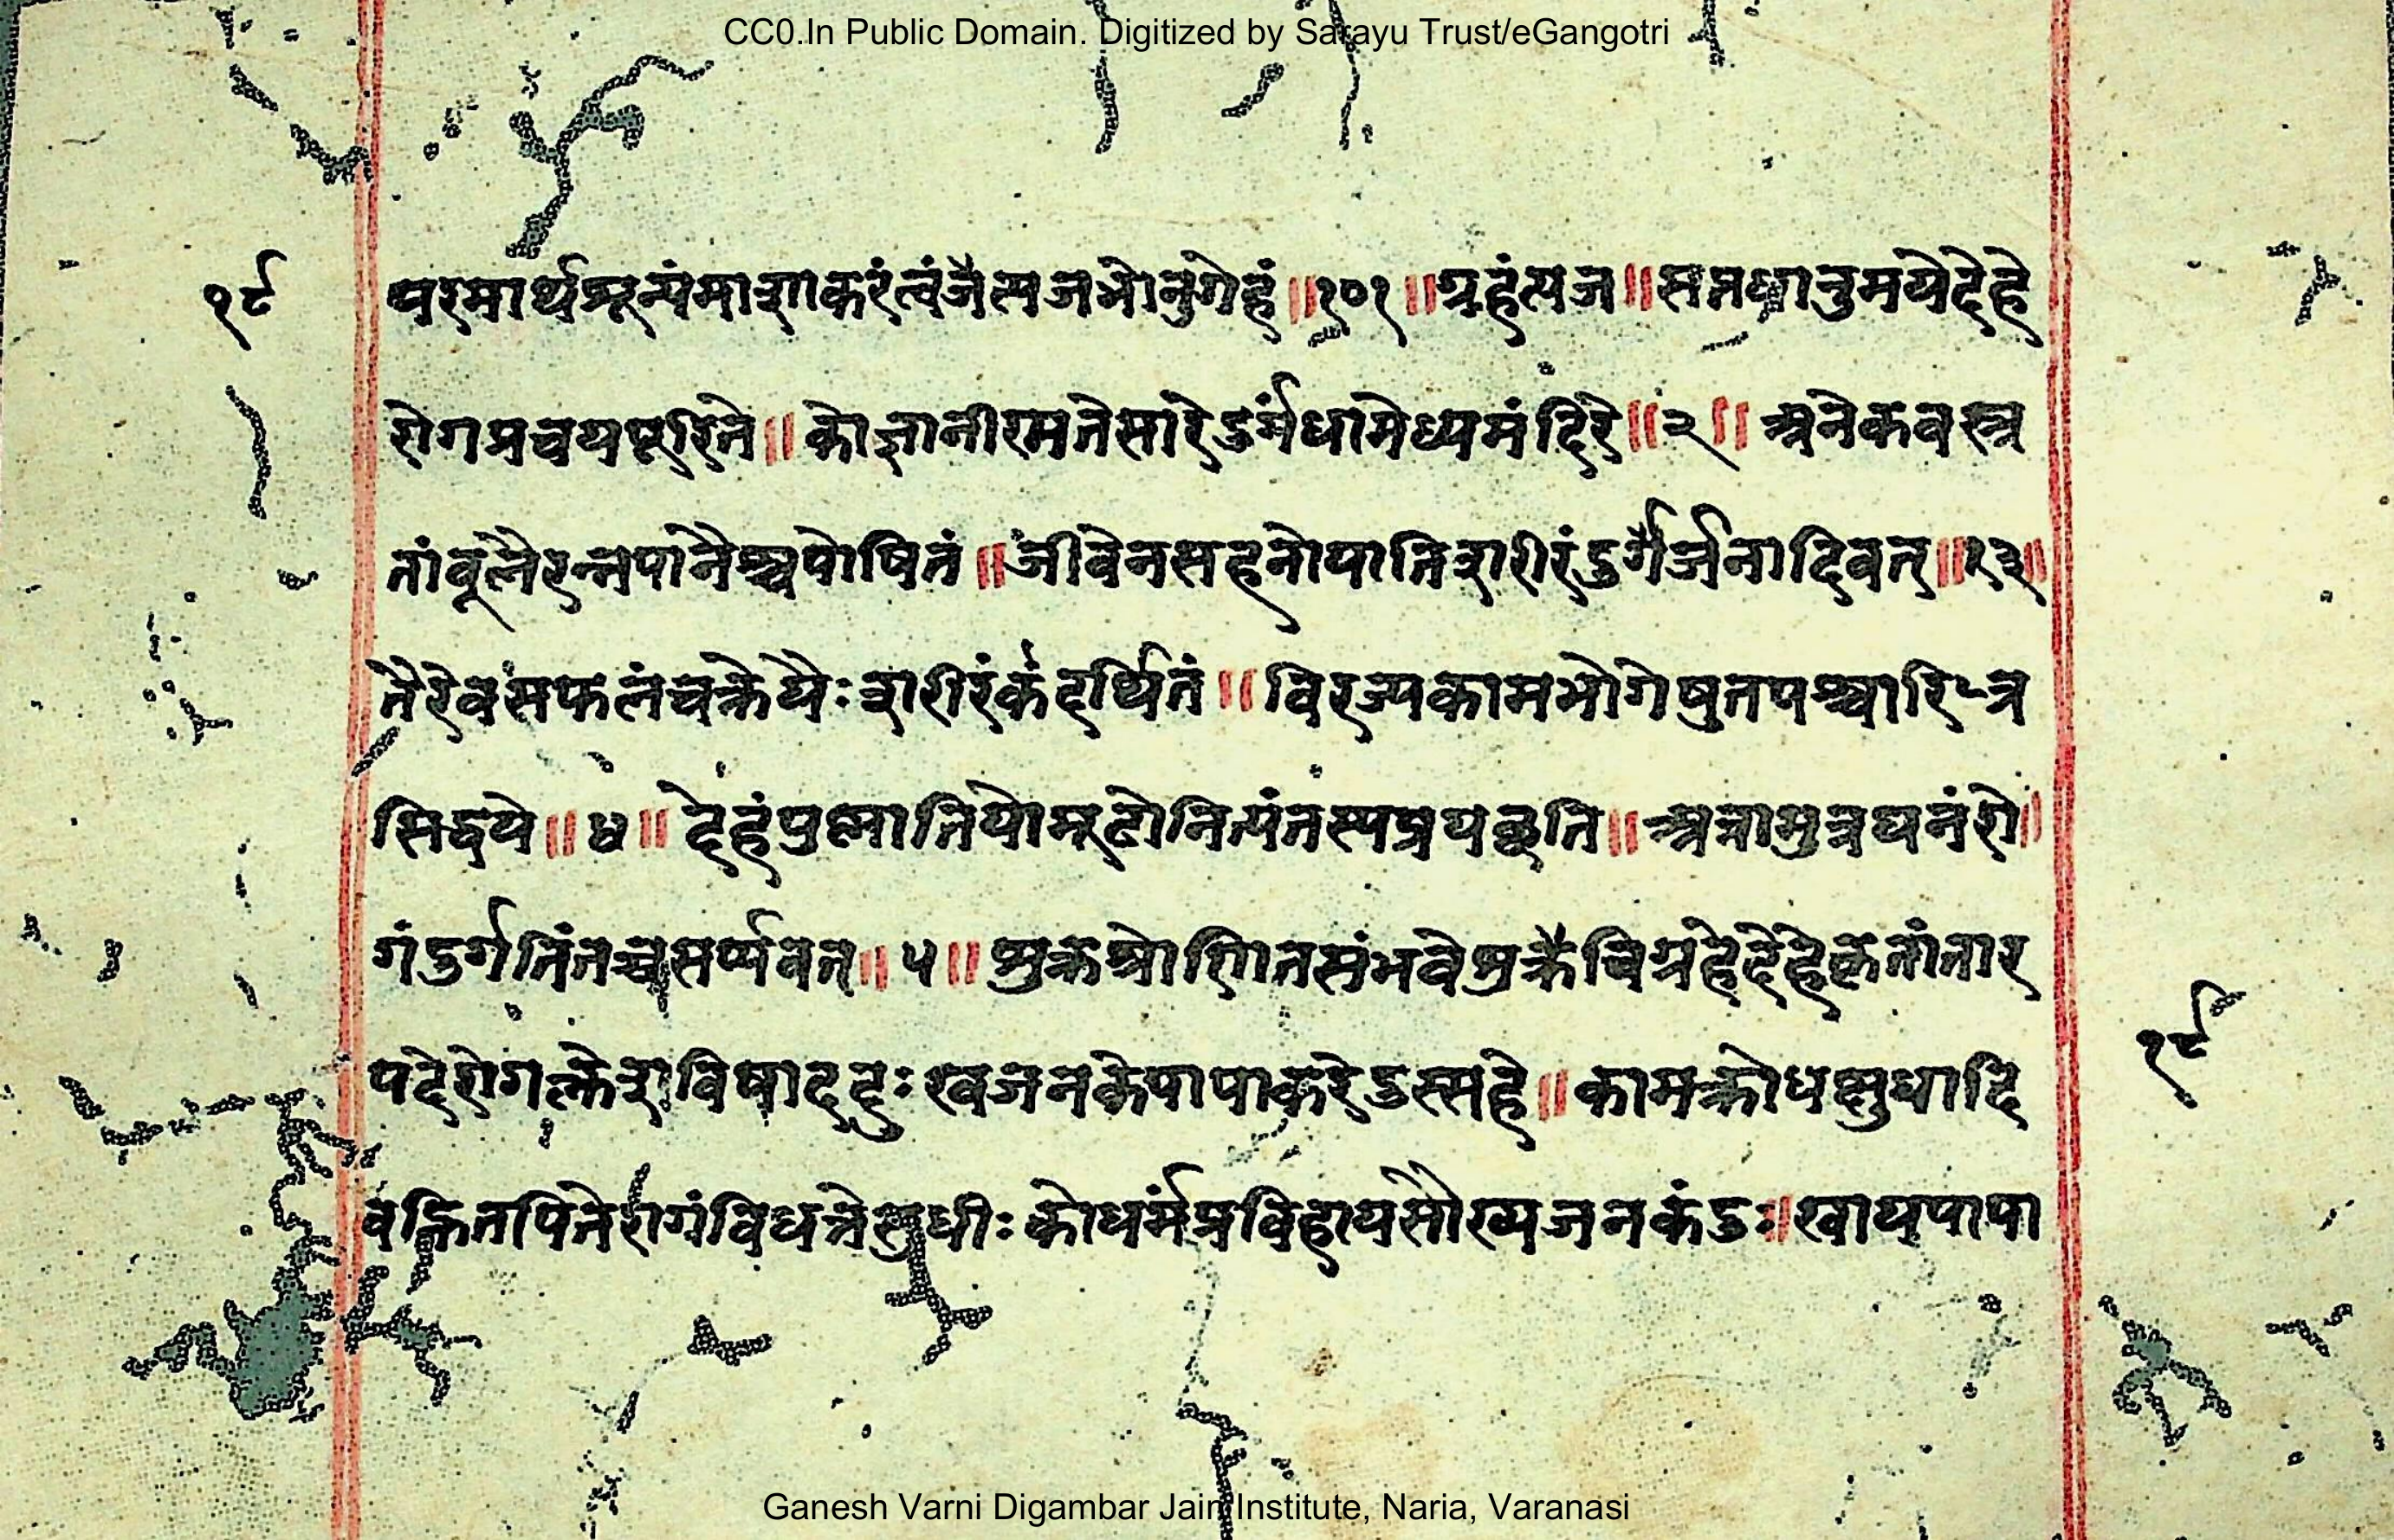 CC0.In Public Domain. Digitized by Sarayu Trust/eGangotri
१८
परमार्थशून्यंमाशाकरंत्वंजैत्यजभोनुगेहं॥१०१॥ग्रहंत्यज॥सप्तधातुमयेदेहे
रोगप्रचयपूरिते॥कोज्ञानीरमतेसारेडर्गंधामेध्यमंदिरे॥२॥अनेकवस्त्र
तांबूलैरन्नपानैश्चपोषितं॥जीवेनसहनोयातिशरीरंडर्गैर्जनादिवत्॥१३॥
तैरेवसफलंचक्रेयैःशरीरंकदर्थितं॥विरज्यकामभोगेषुतपश्चारित्र
सिद्धये॥४॥देहंपुष्णातियोमूढोनित्यंतस्यप्रयछति॥अत्रामुत्रघनंरो॥
गंडर्गतिंतच्चसर्प्पवत्॥५॥शुक्रश्रोणितसंभवेशुक्रैविग्रहेदेहेकृतांतार
पदेरोगक्लेशविषाददुःखजनकेपापाकरेडस्सहे॥कामक्रोधक्षुधादि
वह्नितपितेरागंविधत्तेसुधीःकोधर्मंप्रविहायसौख्यजनकंडः॥खायपापा
१८
Ganesh Varni Digambar Jain Institute, Naria, Varanasi